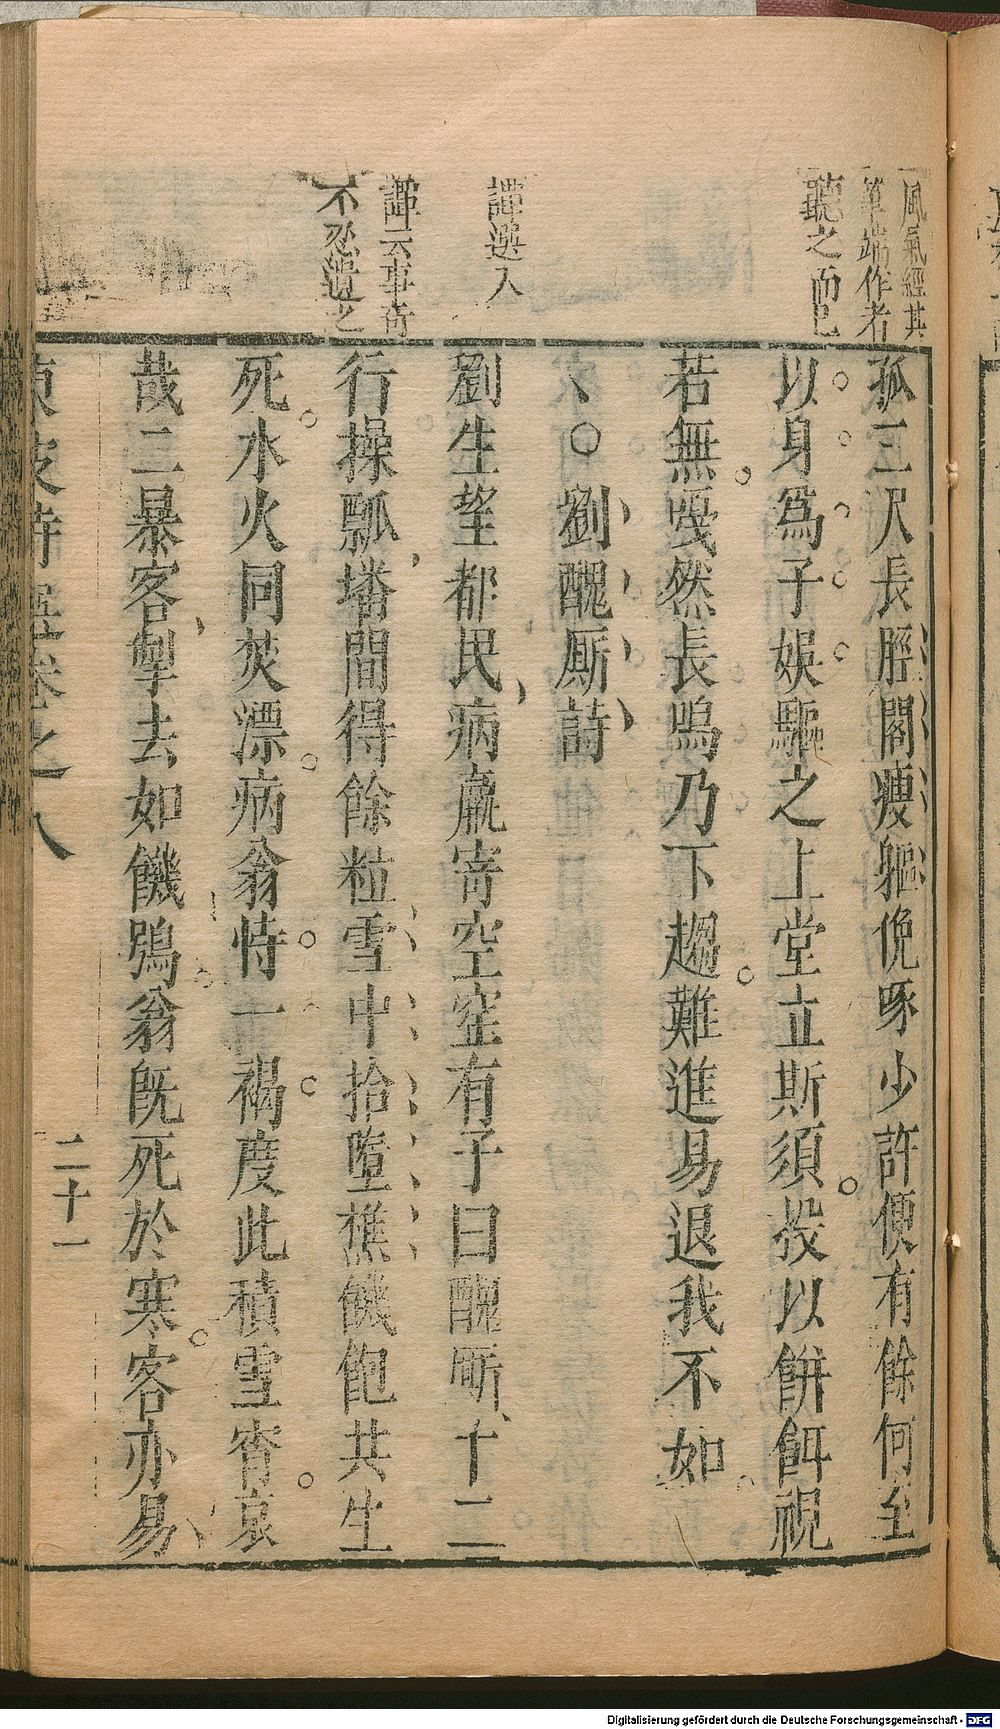 風氣經其
筆端作者
聽之而已
孤三尺長脛閣瘦軀俛啄少許便有餘何至
以身爲子娛驅之上堂立斯須投以餅餌視
若無戞然長鳴乃下趨難進易退我不如
、○劉醜厮詩
譚選入
劉生望都民病羸寄空窑有子曰醜厮十二
譚云事奇
不忍遺之
行操瓢墦間得餘粒雪中拾墮樵饑飽共生
死水火同焚漂病翁恃一褐度此積雪宵哀
哉二暴客掣去如饑鴞翁旣死於寒客亦易
東坡詩選卷之八
二十一
Digitalisierung gefördert durch die Deutsche Forschungsgemeinschaft - DFG